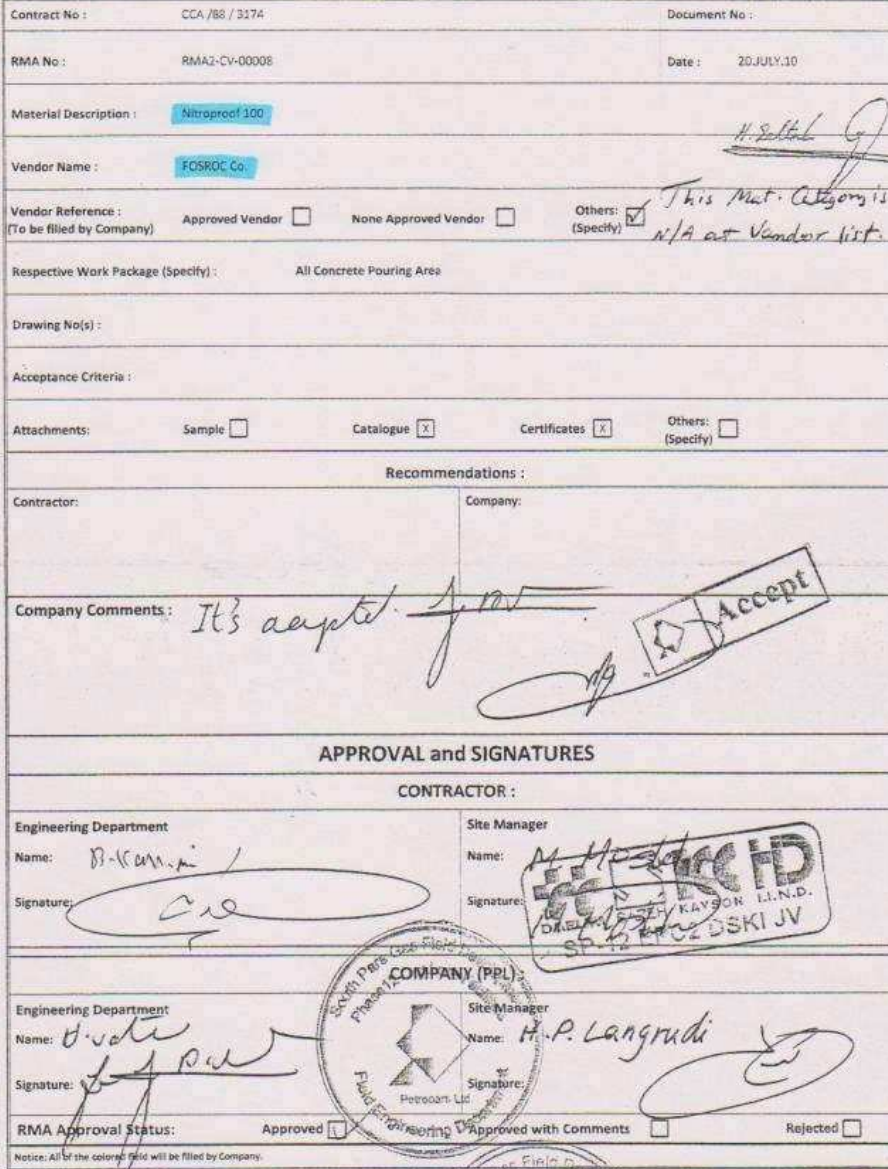 Contract No : CCA /88 / 3174 Document No :
RMA No : RMA2-CV-00008 Date : 20.JULY.10
Material Description : Nitroproof 100
Vendor Name : FOSROC Co.
Vendor Reference : (To be filled by Company) Approved Vendor None Approved Vendor Others: (Specify) ✓
This Mat. Category is
N/A at Vendor list.
Respective Work Package (Specify) : All Concrete Pouring Area
Drawing No(s) :
Acceptance Criteria :
Attachments: Sample Catalogue X Certificates X Others: (Specify)
Recommendations :
Contractor: Company:
Company Comments : It's
Accept
APPROVAL and SIGNATURES
CONTRACTOR :
Engineering Department Site Manager
Name: Name: M.
Signature: Signature:
KAYSON I.I.N.D.
DSKI JV
COMPANY (PPL)
Engineering Department Site Manager
Name: Name: H.P. Langrudi
Signature: Signature:
South Pars Gas Field
Phase 12
Petropars Ltd
Field Engineering Department
RMA Approval Status: Approved Approved with Comments Rejected
Notice: All of the colored field will be filled by Company.